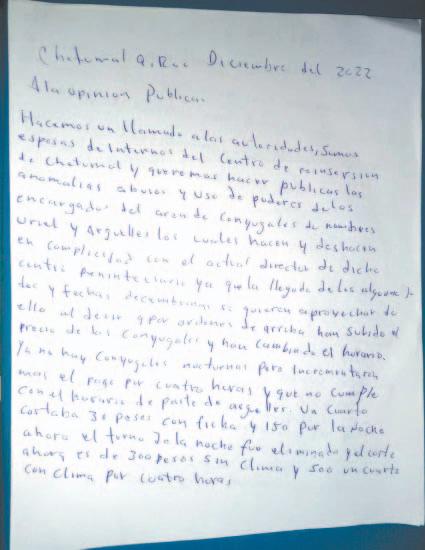 Chetumal Q. Roo Diciembre del 2022
A la opinion Publica.
Hacemos un llamado a las autoridades, Somos
esposas de Internos del Centro de reinsersion
de Chetumal y queremos hacer publicas las
anomalias abusos y uso de poderes de los
encargados del area de Conyugales de nombres
Uriel y Arguelles los cuales hacen y deshacen
en complicidad con el actual director de dicho
centro penintenciario ya que la llegada de los
y fechas decembrinas se quieren aprovechar de
ello al decir q por ordenes de arriba han subido el
precio de los Conyugales y han cambiado el horario.
Ya no hay Conyugales nocturnos pero incrementaron
mas el pago por cuatro horas y que no cumple
con el horario de parte de arguelles. Un Cuarto
costaba 30 pesos con ficha y 150 por la Noche
ahora el turno de la noche fue eliminado y el corte
ahora es de 300 pesos Sin Clima y 500 un cuarto
con clima por cuatro horas